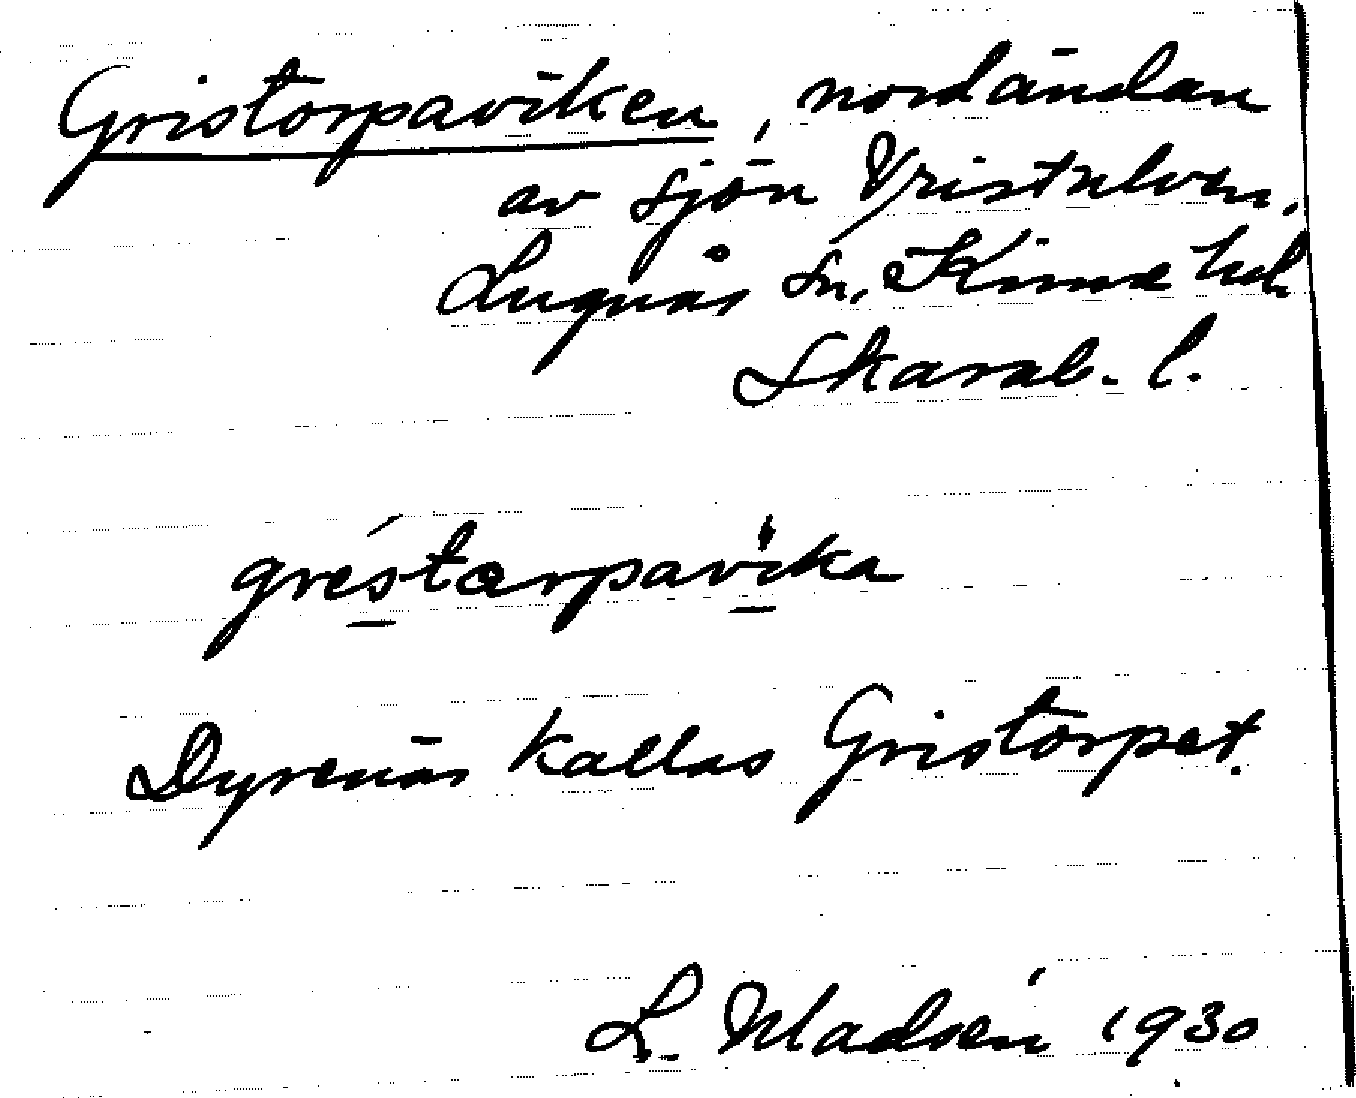 Gristorpaviken, nordändan
av sjön Vristulven.
Lugnås sn, Kinne hd.
Skarab. l.
grestarpavika
Dyrenäs kallas Gristorpet.
L. Madsén 1930